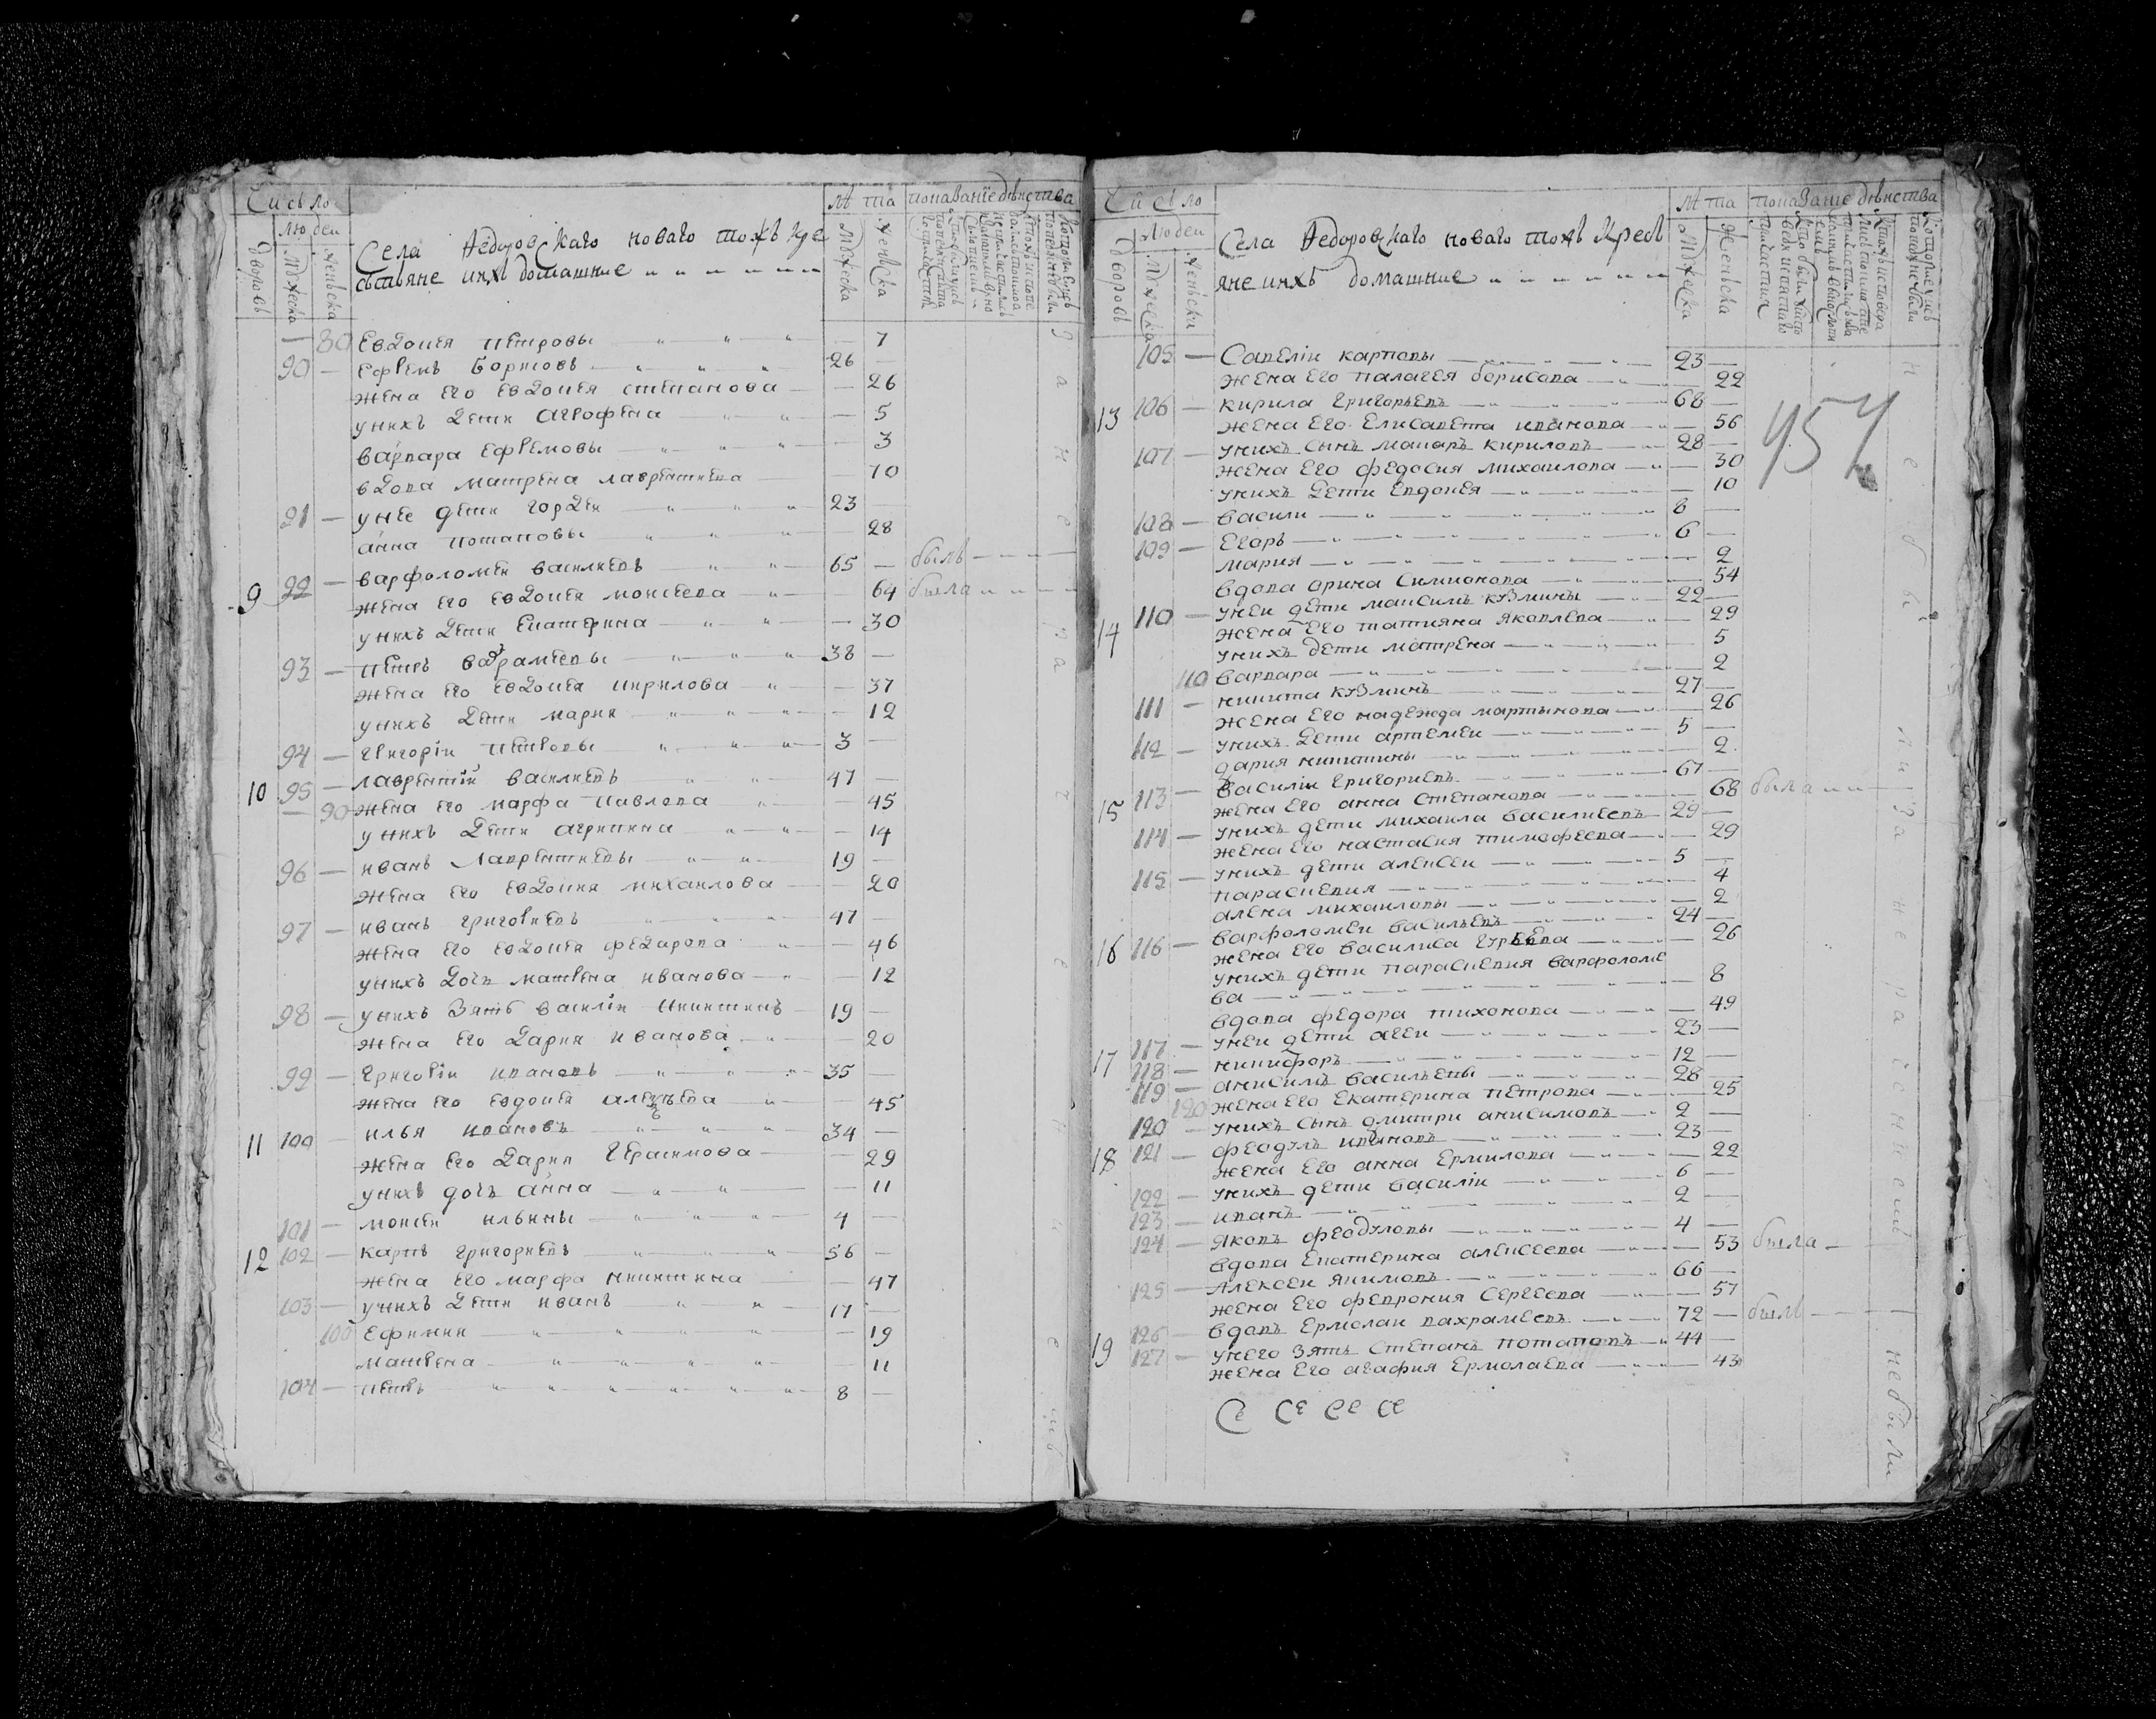 Число
людеи
дворовъ
мужеска
женьска
Села Федоровскаго новаго тожъ кре
стьяне ихъ домашние
лѣта
мужеска
женьска
показание дѣиства
80 Евдокея Петровы 7
90 Ефремъ Борисовъ 26
жена его Евдокея Степанова 26
у нихъ дети Агрофена 5
Варвара Ефремовы 3
вдова Матрена Лаврентиева 70
91 у нее дети Гордеи 23
Анна Потаповы 28
9 92 Варфоломеи Василиевъ 65 былъ
жена его Евдокея Моисеева 64 была
у нихъ дети Екатерина 30
93 Петръ 38
жена его Евдокея Кирилова 37
у нихъ дети Мария 12
94 Григорiи Петровы 3
10 95 Лаврентий Василиевъ 47
90 жена его Марфа Павлова 45
у нихъ дети Агрипина 14
96 Иванъ Лаврентиевы 19
жена его Евдокия Михаилова 20
97 Иванъ Григориевъ 47
жена его Евдокея Федарова 46
у нихъ дочь Матрена Иванова 12
98 у нихъ зять Василiи Никитинъ 19
жена его Дария Иванова 20
99 Григорiи Ивановъ 35
жена его Евдокея 45
11 100 Илья Ивановъ 34
жена его Дария Герасимова 29
у нихъ дочь Анна 11
101 Моисеи Ильины 4
12 102 Карпъ Григориевъ 56
жена его Марфа Никитина 47
103 у нихъ дети Иванъ 17
100 Ефимии 19
Матрена 11
104 Петръ 8
Число
людеи
дворовъ
мужеска
женьски
Села Федоровскаго новаго тожъ Крест
яне ихъ домашние
лѣта
мужеска
женьска
показание дѣиства
457
105 Савелiи Карповы 23
жена его Палагея Борисова 22
13 106 Кирила Григорьевъ 68
жена его Елисавета Иванова 56
107 у нихъ сынъ Макаръ Кириловъ 28
жена его Федосия Михаилова 30
у нихъ дети Евдокея 10
108 Васили 8
109 Егоръ 6
Мария 2
вдова Орина Симионова 54
14 110 у неи дети Максимъ Кузмины 22
жена его Татияна Яковлева 29
у нихъ дети Матрена 5
110 Варвара 2
111 Никита Кузминъ 27
жена его Надежда Мартынова 26
112 у нихъ дети Артемеи 5
Дария Никитины 2
15 113 Василiи Григориевъ 67
жена его Анна Степанова 68 была
114 у нихъ дети Михаила Василиевъ 29
жена его Настасия Тимофеева 29
115 у нихъ дети Алексеи 5
Параскевия 4
Алена Михаиловы 2
16 116 Варфоломеи Васильевъ 24
жена его Василиса Гурьева 26
у нихъ дети Параскевия Варфоломе
ва 8
вдова Федора Тихонова 49
17 117 у неи дети Агеи 23
118 Никифоръ 12
119 Анисимъ Васильевы 28
120 жена его Екатерина Петрова 25
120 у нихъ сынъ Дмитри Анисимовъ 2
18 121 Феодулъ Ивановъ 23
жена его Анна Ермилова 22
122 у нихъ дети Василiи 6
123 Иванъ 2
124 Яковъ Феодуловы 4
вдова Екатерина Алексеева 53 была
125 Алексеи Якимовъ 66
жена его Феврония Сергеева 57
19 126 вдовъ Ермолаи Вахрамеевъ 72 былъ
127 у него зять Степанъ Потаповъ 44
жена его Агафия Ермолаева 43